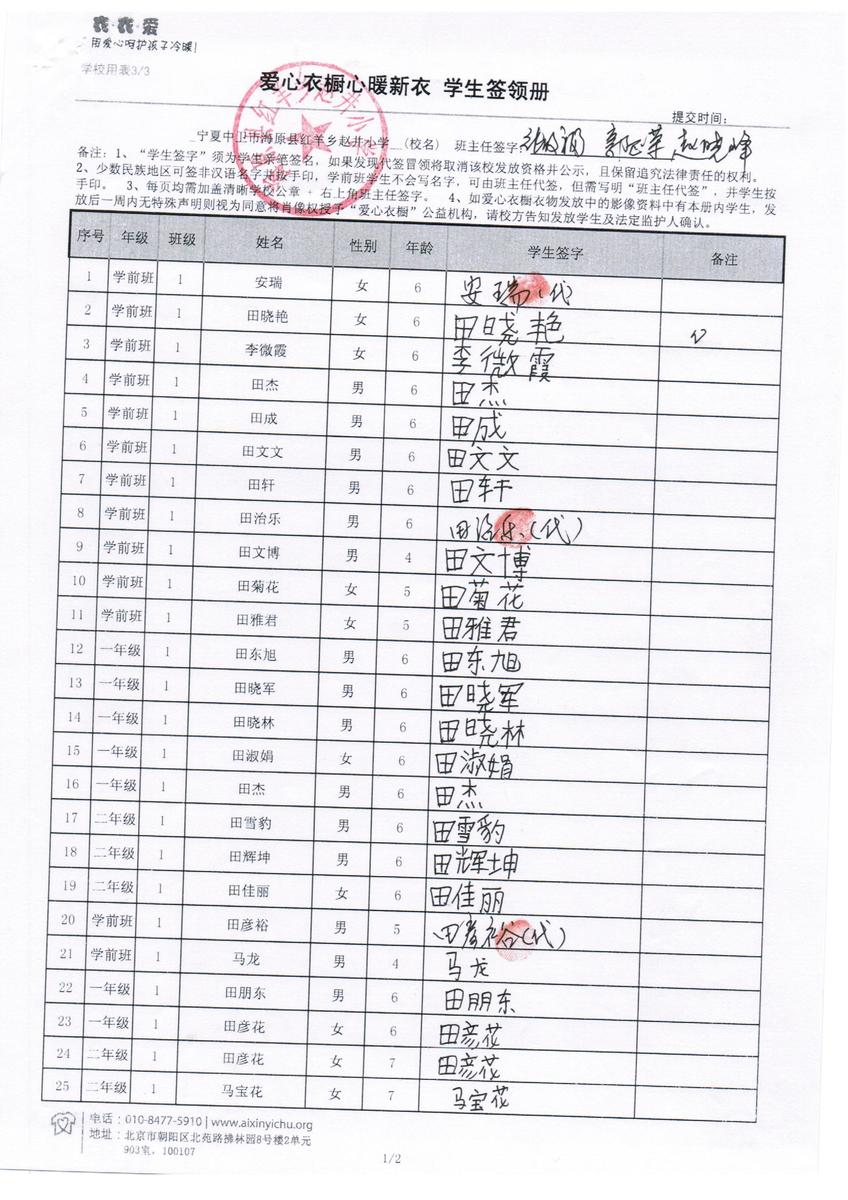 衣·衣·爱
用爱心呵护孩子冷暖!
学校用表3/3
爱心衣橱心暖新衣 学生签领册
提交时间:
宁夏中卫市海原县红羊乡赵井小学 (校名) 班主任签字:
备注:1、“学生签字”须为学生亲笔签名,如果发现代签冒领将取消该校发放资格并公示,且保留追究法律责任的权利。
2、少数民族地区可签非汉语名字并按手印,学前班学生不会写名字,可由班主任代签,但需写明“班主任代签”,并学生按
手印。 3、每页均需加盖清晰学校公章 + 右上角班主任签字。 4、如爱心衣橱衣物发放中的影像资料中有本册内学生,发
放后一周内无特殊声明则视为同意将肖像权授予“爱心衣橱”公益机构,请校方告知发放学生及法定监护人确认。
序号 年级 班级 姓名 性别 年龄 学生签字 备注
1 学前班 1 安瑞 女 6 安瑞(代)
2 学前班 1 田晓艳 女 6 田晓艳
3 学前班 1 李微霞 女 6 李微霞
4 学前班 1 田杰 男 6 田杰
5 学前班 1 田成 男 6 田成
6 学前班 1 田文文 男 6 田文文
7 学前班 1 田轩 男 6 田轩
8 学前班 1 田治乐 男 6 田治乐(代)
9 学前班 1 田文博 男 4 田文博
10 学前班 1 田菊花 女 5 田菊花
11 学前班 1 田雅君 女 5 田雅君
12 一年级 1 田东旭 男 6 田东旭
13 一年级 1 田晓军 男 6 田晓军
14 一年级 1 田晓林 男 6 田晓林
15 一年级 1 田淑娟 女 6 田淑娟
16 一年级 1 田杰 男 6 田杰
17 二年级 1 田雪豹 男 6 田雪豹
18 二年级 1 田辉坤 男 6 田辉坤
19 二年级 1 田佳丽 女 6 田佳丽
20 学前班 1 田彦裕 男 5 田彦裕(代)
21 学前班 1 马龙 男 4 马龙
22 一年级 1 田朋东 男 6 田朋东
23 一年级 1 田彦花 女 6 田彦花
24 二年级 1 田彦花 女 7 田彦花
25 二年级 1 马宝花 女 7 马宝花
电话:010-8477-5910 | www.aixinyichu.org
地址:北京市朝阳区北苑路拂林园8号楼2单元
903室,100107
1/2